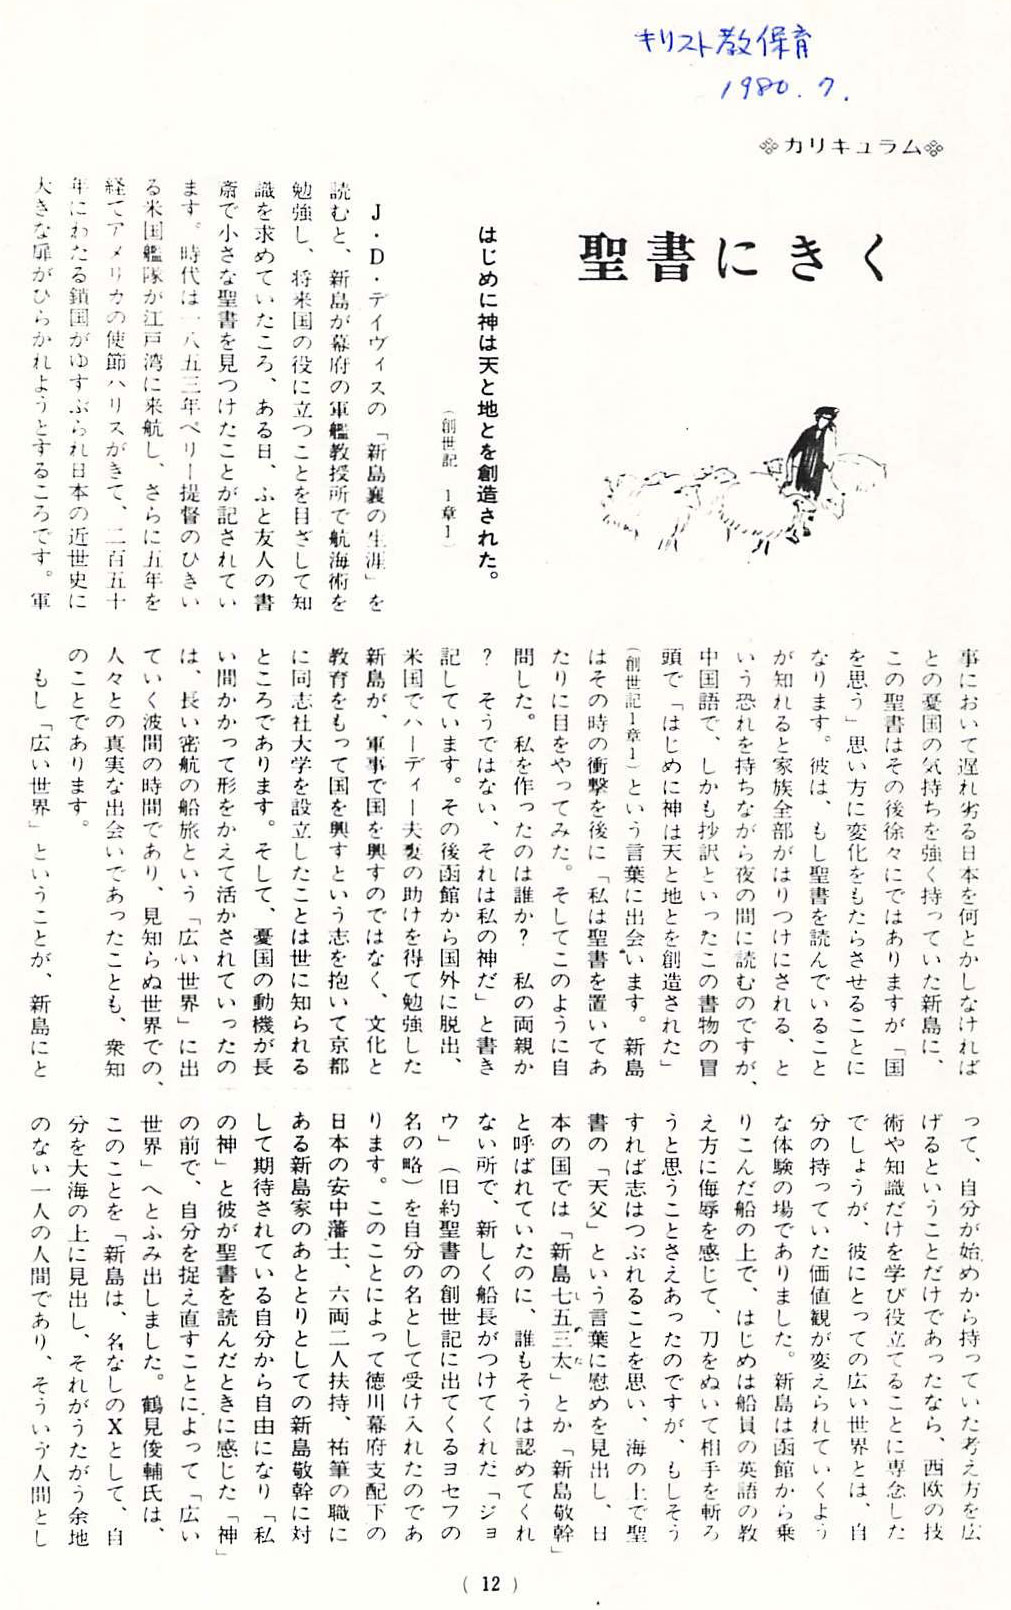 キリスト教保育
1980.7.
※カリキュラム※
聖書にきく
はじめに神は天と地とを創造された。
（創世記　1章1）
J・D・デイヴィスの「新島襄の生涯」を
読むと、新島が幕府の軍艦教授所で航海術を
勉強し、将来国の役に立つことを目ざして知
識を求めていたころ、ある日、ふと友人の書
斎で小さな聖書を見つけたことが記されてい
ます。時代は一八五三年ペリー提督のひきい
る米国艦隊が江戸湾に来航し、さらに五年を
経てアメリカの使節ハリスがきて、二百五十
年にわたる鎖国がゆすぶられ日本の近世史に
大きな扉がひらかれようとするころです。軍
事において遅れ劣る日本を何とかしなければ
との憂国の気持ちを強く持っていた新島に、
この聖書はその後徐々にではありますが「国
を思う」思い方に変化をもたらさせることに
なります。彼は、もし聖書を読んでいること
が知れると家族全部がはりつけにされる、と
いう恐れを持ちながら夜の間に読むのですが、
中国語で、しかも抄訳といったこの書物の冒
頭で「はじめに神は天と地とを創造された」
（創世記1章1）という言葉に出会います。新島
はその時の衝撃を後に「私は聖書を置いてあ
たりに目をやってみた。そしてこのように自
問した。私を作ったのは誰か？　私の両親か
？　そうではない、それは私の神だ」と書き
記しています。その後函館から国外に脱出、
米国でハーディー夫妻の助けを得て勉強した
新島が、軍事で国を興すのではなく、文化と
教育をもって国を興すという志を抱いて京都
に同志社大学を設立したことは世に知られる
ところであります。そして、憂国の動機が長
い間かかって形をかえて活かされていったの
は、長い密航の船旅という「広い世界」に出
ていく波間の時間であり、見知らぬ世界での、
人々との真実な出会いであったことも、衆知
のことであります。
もし「広い世界」ということが、新島にと
って、自分が始めから持っていた考え方を広
げるということだけであったなら、西欧の技
術や知識だけを学び役立てることに専念した
でしょうが、彼にとっての広い世界とは、自
分の持っていた価値観が変えられていくよう
な体験の場でありました。新島は函館から乗
りこんだ船の上で、はじめは船員の英語の教
え方に侮辱を感じて、刀をぬいて相手を斬ろ
うと思うことさえあったのですが、もしそう
すれば志はつぶれることを思い、海の上で聖
書の「天父」という言葉に慰めを見出し、日
本の国では「新島七五三太」とか「新島敬幹」
と呼ばれていたのに、誰もそうは認めてくれ
ない所で、新しく船長がつけてくれた「ジョ
ウ」（旧約聖書の創世記に出てくるヨセフの
名の略）を自分の名として受け入れたのであ
ります。このことによって徳川幕府支配下の
日本の安中藩士、六両二人扶持、祐筆の職に
ある新島家のあととりとしての新島敬幹に対
して期待されている自分から自由になり「私
の神」と彼が聖書を読んだときに感じた「神」
の前で、自分を捉え直すことによって「広い
世界」へとふみ出しました。鶴見俊輔氏は、
このことを「新島は、名なしのXとして、自
分を大海の上に見出し、それがうたがう余地
のない一人の人間であり、そういう人間とし
（12）